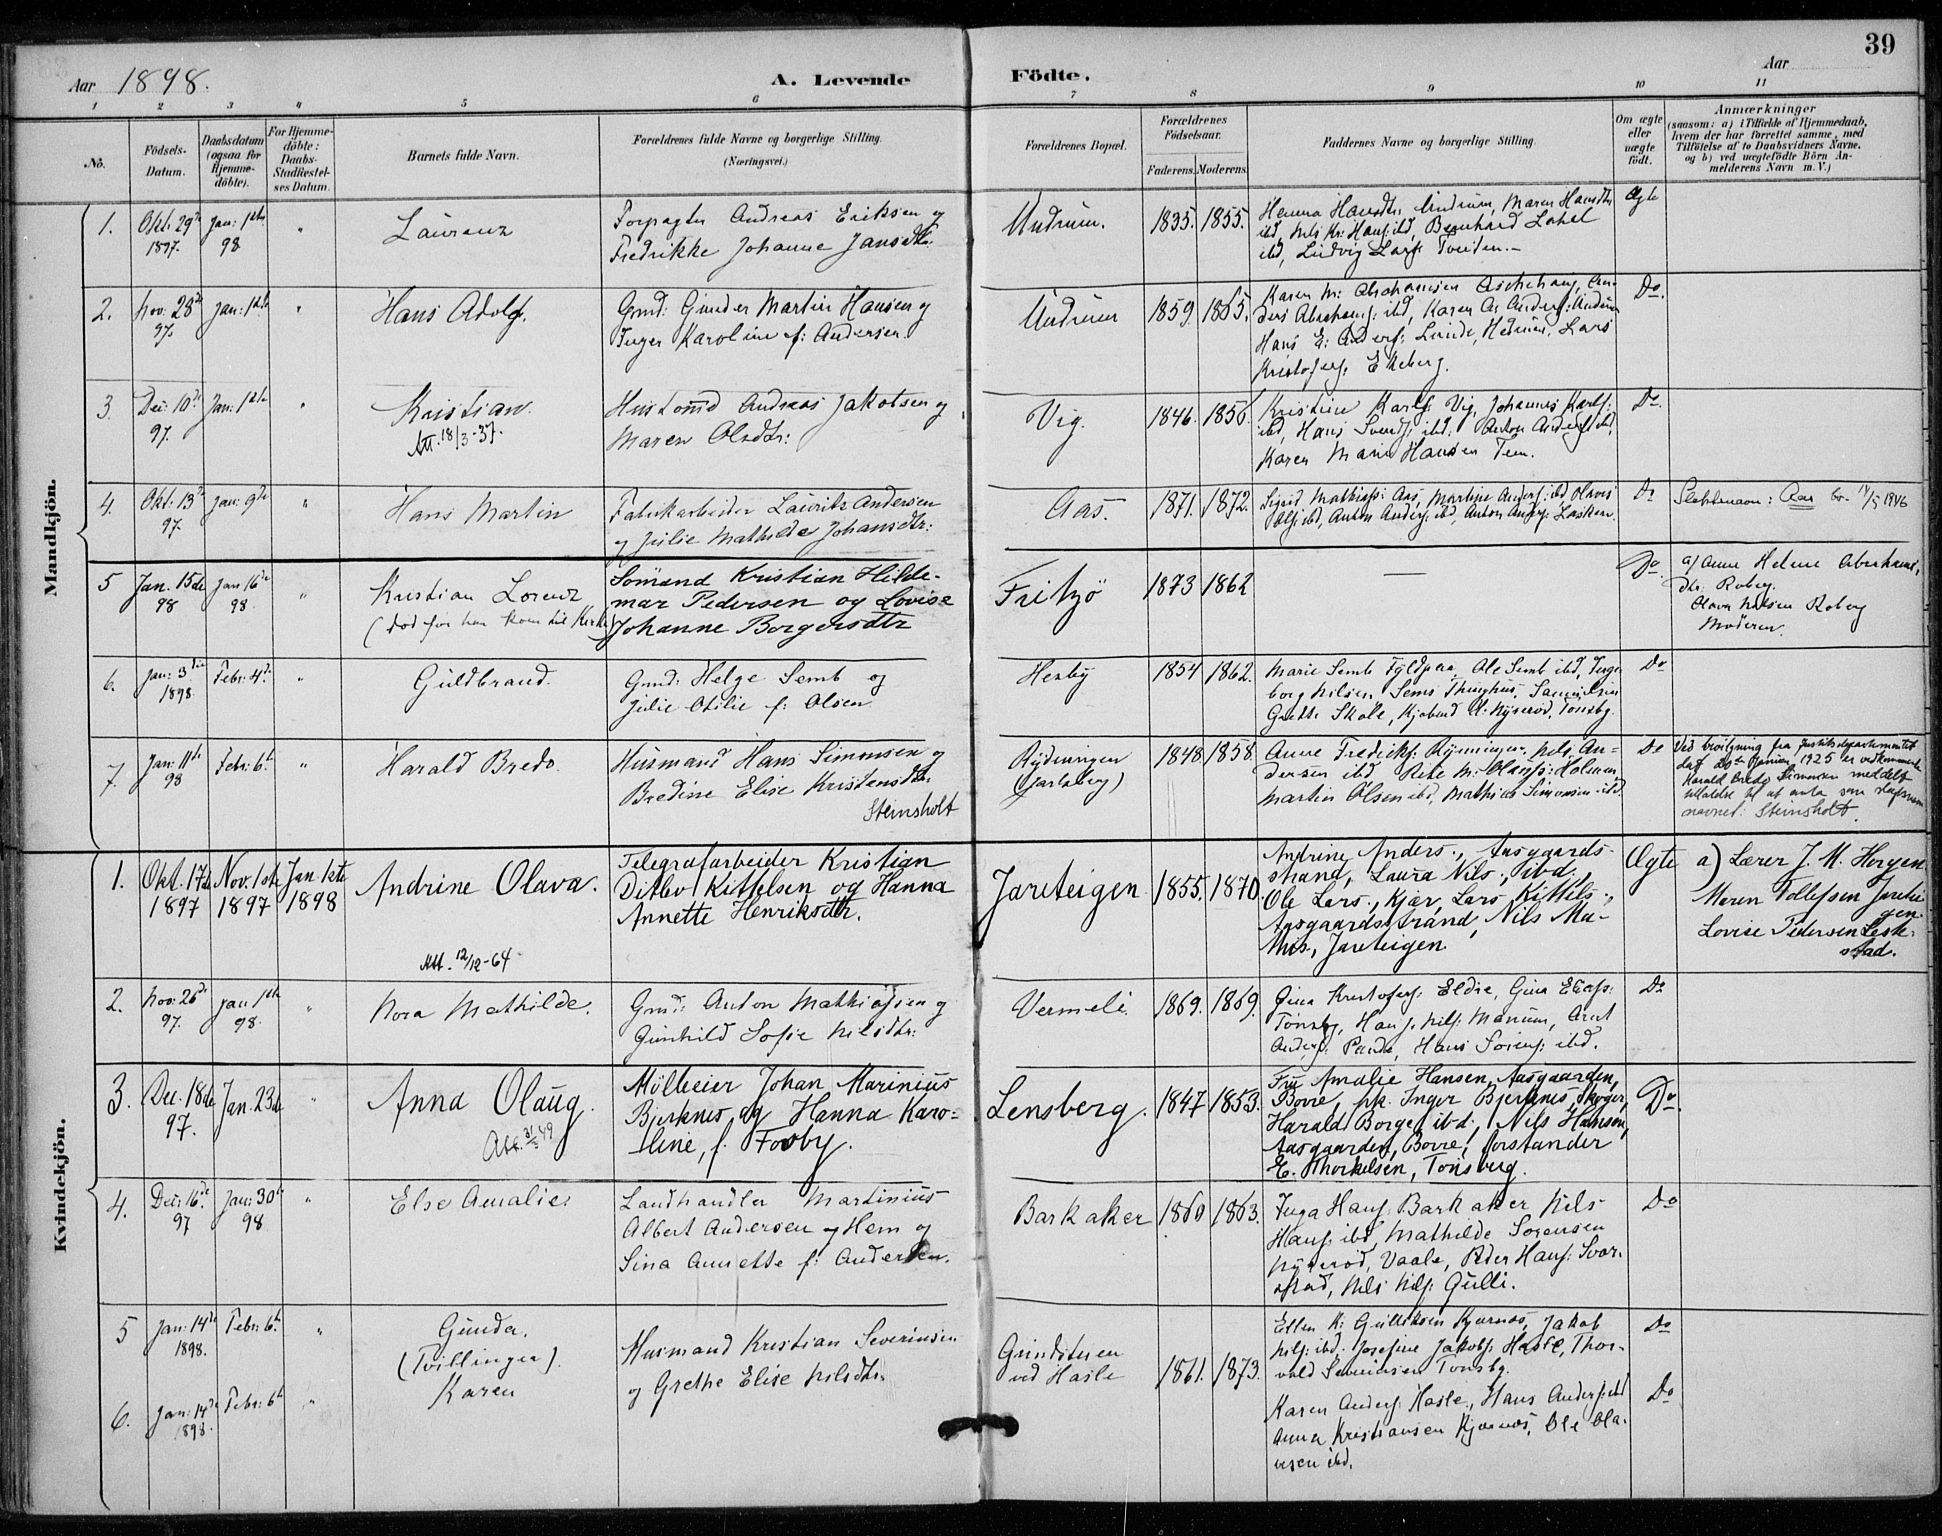 39
Aar 1898.
A. Levende
Födte.
Aar
1 2 3 4 5 6 7 8 9 10 11
No.
Födsels-
Datum.
Daabsdatum
(ogsaa for
Hjemme-
döbte).
For Hjemme-
döbte:
Daabs-
Stadfestel-
ses Datum.
Barnets fulde Navn.
Forældrenes fulde Navne og borgerlige Stilling.
(Næringsvei.)
Forældrenes Bopæl.
Forældrenes
Födselsaar.
Faderens. Moderens.
Faddernes Navne og borgerlige Stilling.
Om ægte
eller
uægte
født.
Anmærkninger
(saasom: a) i Tilfælde af Hjemmedaab,
hvem der har forrettet samme, med
Tilföielse af to Daabsvidners Navne,
og b) ved uægtefödte Börn An-
melderens Navn m. V.)
Mandkjön.
1.
Okt. 29de
1897.
Jan: 1ste
98
"
Laurenz
Forpagter Andreas Eriksen og
Fredrikke Johanne Jansdtr:
Undrum.
1835. 1855.
Hanna Hansdtr: Undrum, Maren Hansdtr:
ibd, Nils Kr: Hans: ibd, Bernhard
ibd, Ludvig Lars: Tveiten.
Ægte
2.
Nov: 28de
97.
Jan: 1ste
"
Hans Adolf.
Gmd: Gunder Martin Hansen og
Inger Karoline f: Andersen.
Undrum
1859. 1865.
Karen M: Abrahamsen Aschehoug, An-
ders Abrahams: ibd, Karen A: Anders: Undrum
Hans E: Anders: Linde, Hedrum, Lars
Kristofers: Ekeberg.
Do.
3.
Dec: 10de
97.
Jan: 1ste
"
Kristian.
Att. 18/3-37.
Husmd Andreas Jakobsen og
Maren Olsdtr:
Vig.
1846. 1856.
Kristine Karls: Vig, Johannes Karls:
ibd, Hans Svends: ibd, Anton Anders: ibd,
Karen Marie Hansen Tem.
Do.
4.
Okt: 13de
97.
Jan: 9de
"
Hans Martin
Fabrikarbeider Lauritz Andersen
og Julie Mathilde Johansdtr:
Aas.
1871. 1872.
Sigrid Mathias: Aas, Martine Anders: ibd Olaves
Ols: ibd, Anton Anders: ibd, Anton Anders: Lasken.
Do
Slektsnavn: Aas br. 14/5 1946
5
Jan. 15de
98
Jan 16de
98.
"
Kristian Lorenz
(död før han kom til Kirke)
Sömand Kristian Hilde-
mar Pedersen og Lovise
Johanne Borgersdtr
Fritzö
1873 1862
—
Do
a) Anne Helene Abrahams-
dtr. Roberg.
Olava Nilsen Roberg
Moderen.
6.
Jan: 3die
1898.
Febr: 4de
"
Guldbrand.
Gmd: Helge Semb og
Julie Otilie f: Olsen
Hesby
1854 1862.
Marie Semb Fyldpaa, Ole Semb ibd, Inge-
borg Nilsen, Sems Thinghus,
Grette Skole, Tönsbg.
Do
7.
Jan: 11te
98
Febr: 6te
"
Harald Bredo.
Husmand Hans Simonsen og
Bredine Elise Kristensdtr:
Steinsholt
Rydningen
(Jarlsberg)
1848 1858.
Anne Frediks: Rydningen, Nils An-
dersen ibd M: Hans: Holmen
Martin Olsen ibd, Mathias Simonsen ibd
Do
Ved bevilgning fra Justitsdepartementet
dat 20de Januar 1925 er vedkommende
Harald Bredo Simonsen meddelt
tilladelse til at anta som slegtsnavn
navnet: Steinsholt.
Kvindekjön.
1.
Okt. 17de
1897
Nov. 1ste
1897
Jan. 1ste
1898
Andrine Olava.
Att. 12/12-64
Telegrafarbeider Kristian
Ditlev Kittelsen og Hanna
Annette Henriksdtr.
Jareteigen
1855. 1870.
Andrine Anders., Aasgaards-
strand, Laura Nils., ibd.,
Ole Lars., Kjær, Lars Kittels.,
Aasgaardsstrand, Nils Ma-
this, Jareteigen
Ægte
a) Lærer J. M. Horgen
Maren Tollefsen Jaretei-
gen.
Lovise Pedersen Lesk-
stad.
2.
Nov: 26de
97.
Jan 1ste
98.
"
Nora Mathilde.
Gmd: Anton Mathiassen og
Gunhild Sofie Nilsdtr:
Vermeli.
1869. 1869.
Gina Kristofers: Eldre, Gina Elias:
Tönsbg, Hans Nils: Manum, Arnt
Anders: Paude, Hans Sörens: ibd.
Do
3.
Dec. 18de
97.
Jan. 23de
"
Anna Olaug.
Att. 31/3 49
Mölleeier Johan Marinius
Bjerknes og Hanna Karo-
line, f. Fosby.
Lensberg.
1847 1853.
Fru Amalie Hansen, Aasgaarden,
Borre, pk. Inger Bjerknes, Skoger,
Harald Borge, ibd., Nils Hansen,
Aasgaarden, Borre, forstander
E. Thorkelsen, Tönsberg.
Do.
4.
Dec: 16de
97
Jan: 30te
98.
"
Else Amalie.
Landhandler Martinius
Albert Andersen og Hem og
Sina Annette f: Andersen.
Barkaker
1860 1863.
Inga Hans: Barkaker Nils
Hans: ibd, Mathilde Sorensen
Nyerød, Vaale, Peder Hans: Svar-
stad, Nils Nils: Gulli.
Do
5
Jan: 14de
1898.
Febr: 6te
"
Gunda.
(Tvillinger).
Karen
Husmand Kristian Severinsen
og Grethe Elise Nilsdtr.
Grindstuen
ved Hasle
1861. 1873.
Ellen K: Gulliksen Kjærnes, Jakob
Nils: ibd. Josefine Jakobs: Hasle, Thor-
vald Severinsen Tönsbg.
Do
6.
Jan: 14de
1898.
Febr: 6te
"
Karen Anders: Hasle, Hans Anders: ibd
Anna Kristiansen Kjærnes, Ole Ola-
vesen ibd.
Do